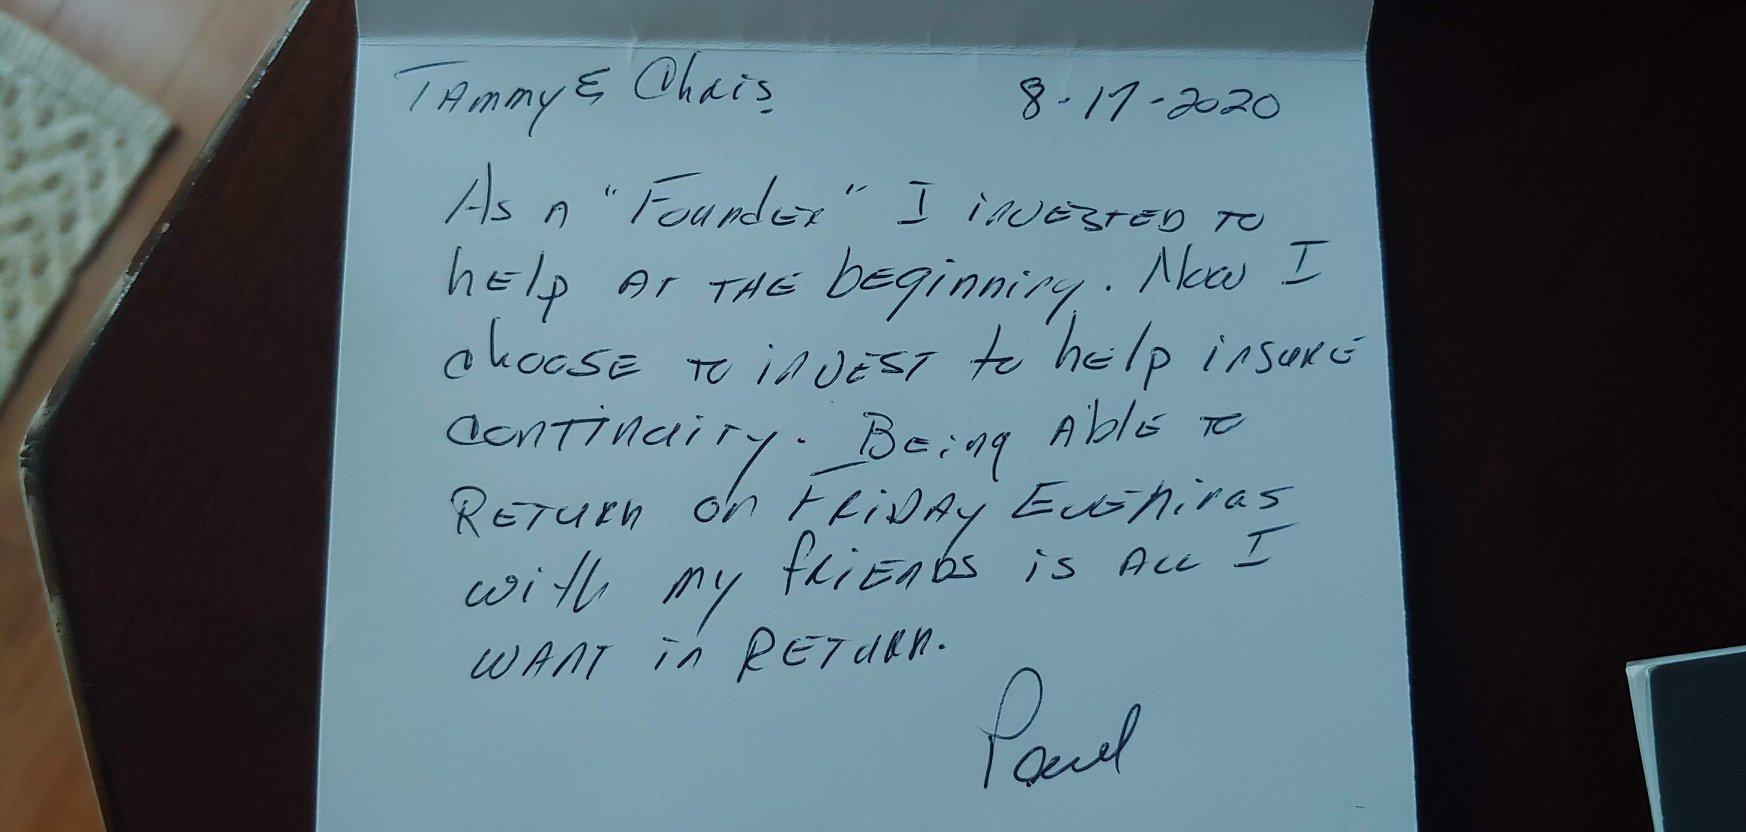 Tammy & Chris 8-17-2020
As a "Founder" I invested to
help at the beginning. Now I
choose to invest to help insure
continuity. Being able to
Return on Friday Evenings
with my friends is all I
want in Return.
Paul